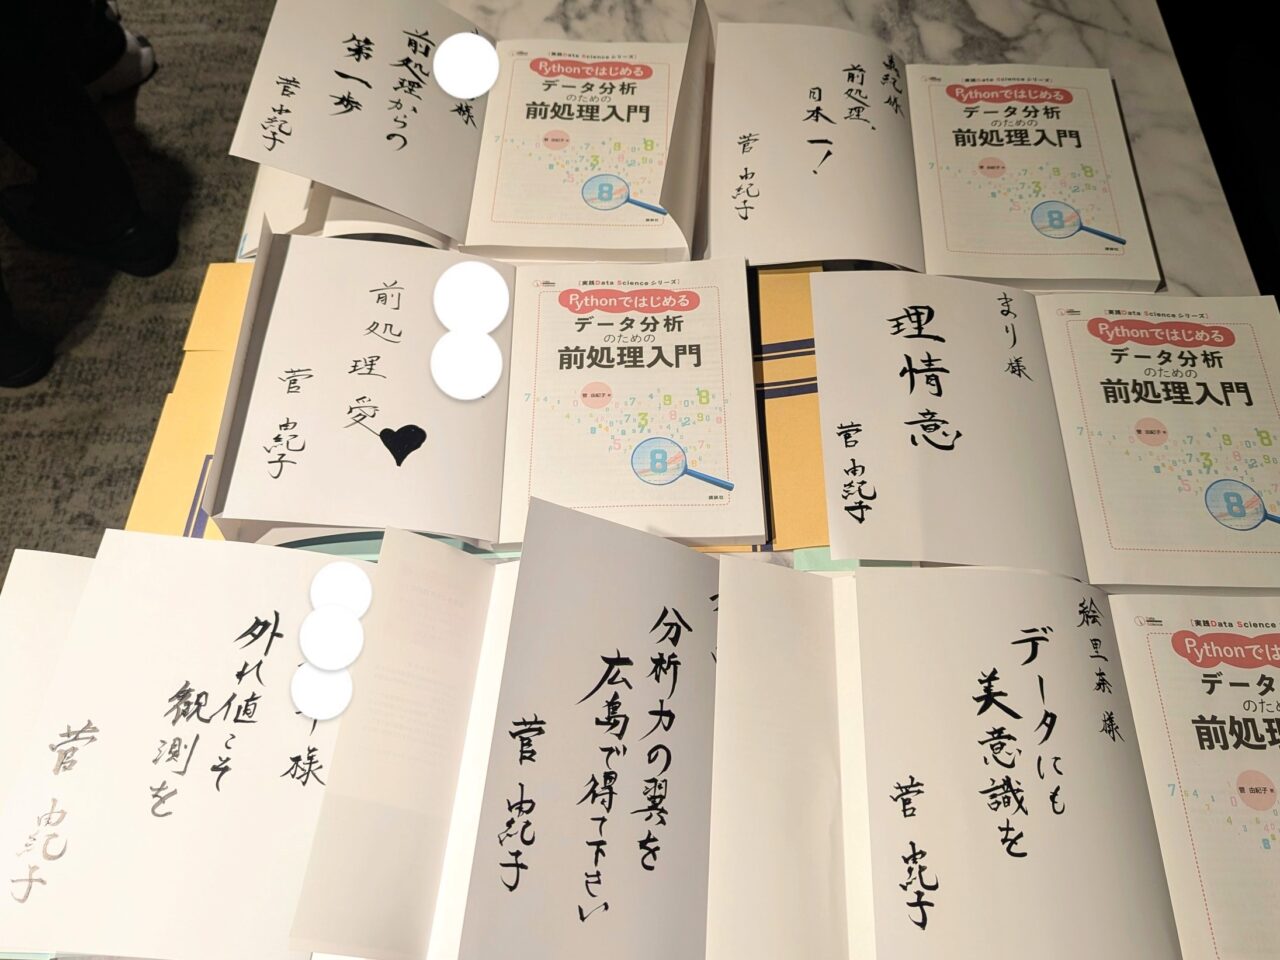 様
前処理からの
第一歩
菅 由紀子
[実践Data Scienceシリーズ]
Pythonではじめる
データ分析
のための
前処理入門
菅 由紀子 著
講談社
紀様
前処理、
日本一!
菅 由紀子
[実践Data Scienceシリーズ]
Pythonではじめる
データ分析
のための
前処理入門
菅 由紀子 著
講談社
前処理愛
菅 由紀子
[実践Data Scienceシリーズ]
Pythonではじめる
データ分析
のための
前処理入門
菅 由紀子 著
講談社
まり様
理情意
菅 由紀子
[実践Data Scienceシリーズ]
Pythonではじめる
データ分析
のための
前処理入門
菅 由紀子 著
様
外れ値こそ
観測を
菅 由紀子
分析力の翼を
広島で得て下さい
菅 由紀子
絵里奈様
データにも
美意識を
菅 由紀子
[実践Data Science
Pythonでは
データ
のため
前処理
菅 由紀子 著